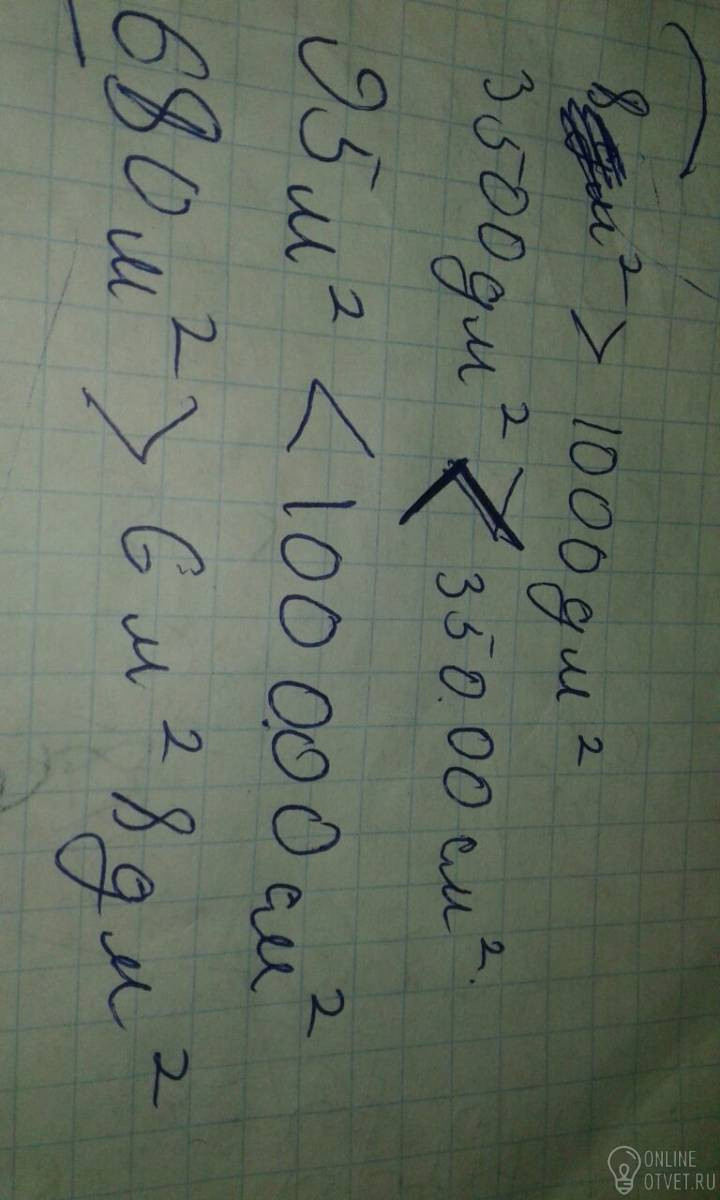 8 м² > 1000дм²
3500дм² < 350.00 см².
95м² < 1000.00см²
680м² > 6м² 8дм²
ONLINE
OTVET.RU